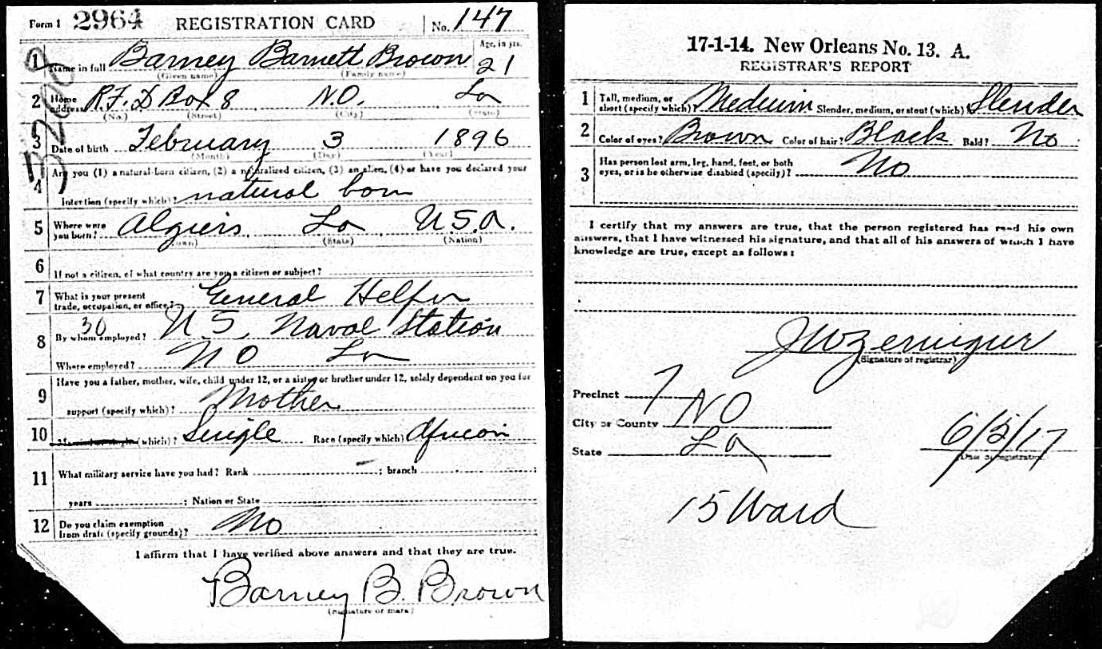 Form 1 2964 REGISTRATION CARD No. 147
1 Name in full Barney Barnett Brown Age, in yrs. 21
(Given name) (Family name)
2 Home address R.F.D Box 8 N.O. La
(No.) (Street) (City) (State)
3 Date of birth February 3 1896
(Month) (Day) (Year)
4 Are you (1) a natural-born citizen, (2) a naturalized citizen, (3) an alien, (4) or have you declared your
intention (specify which)? natural born
5 Where were you born? Algiers La U.S.A.
(Town) (State) (Nation)
6 If not a citizen, of what country are you a citizen or subject?
7 What is your present trade, occupation, or office? General Helper
8 By whom employed? 30 U.S. Naval Station
Where employed? NO La
9 Have you a father, mother, wife, child under 12, or a sister or brother under 12, solely dependent on you for
support (specify which)? Mother
10 (which)? Single Race (specify which) African
11 What military service have you had? Rank ; branch ;
years ; Nation or State
12 Do you claim exemption from draft (specify grounds)? No
I affirm that I have verified above answers and that they are true.
Barney B. Brown
(Signature or mark)
17-1-14. New Orleans No. 13. A.
REGISTRAR'S REPORT
1 Tall, medium, or short (specify which)? Medium Slender, medium, or stout (which)? Slender
2 Color of eyes? Brown Color of hair? Black Bald? No
3 Has person lost arm, leg, hand, feet, or both
eyes, or is he otherwise disabled (specify)? No
I certify that my answers are true, that the person registered has read his own
answers, that I have witnessed his signature, and that all of his answers of which I have
knowledge are true, except as follows:
(Signature of registrar)
Precinct 7
City or County NO
State La
6/5/17
(Date of registration)
15 Ward